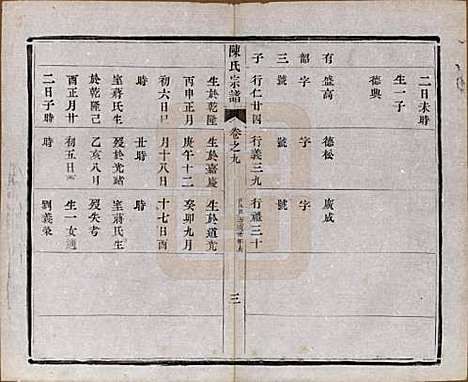 二日未時
生一子
德興
有盛高
韶字
三號
子行仁廿四
德松
字
號
行義三九
廣成
字
號
行禮三十
陳氏宗譜
卷之九
三
生於乾隆
丙申正月
初六日
時
室蔣氏生
於乾隆己
酉正月廿
二日子時
生於嘉慶
庚午十二
月十八日
丑時
歿於光緒
乙亥八月
初五日
生於道光
癸卯九月
十七日
時
室蔣氏生
歿失考
生一女適
劉義榮